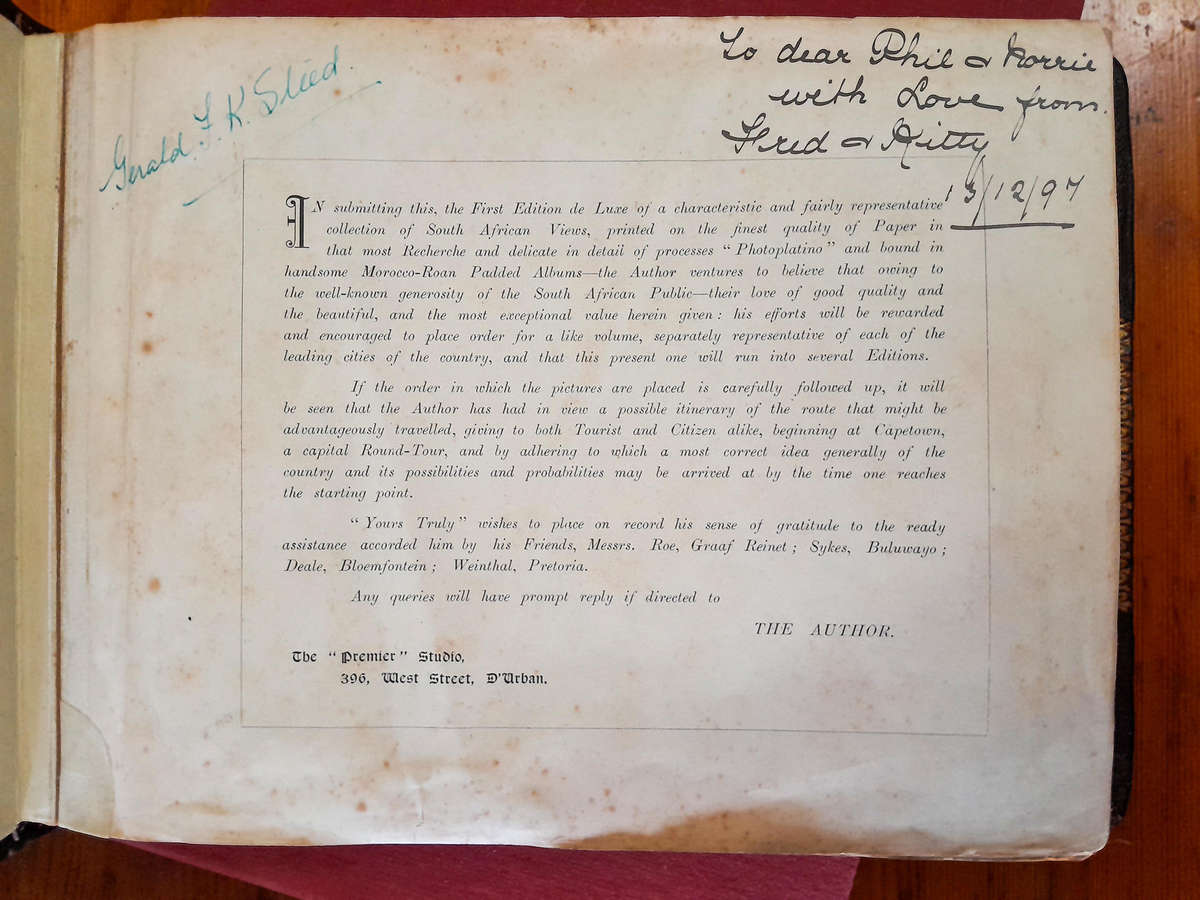 Gerald. F. K. Sleed.
To dear Phil & Norrie
with Love from
Fred & Kitty
13/12/97
IN submitting this, the First Edition de Luxe of a characteristic and fairly representative
collection of South African Views, printed on the finest quality of Paper in
that most Recherche and delicate in detail of processes “Photoplatino” and bound in
handsome Morocco-Roan Padded Albums—the Author ventures to believe that owing to
the well-known generosity of the South African Public—their love of good quality and
the beautiful, and the most exceptional value herein given: his efforts will be rewarded
and encouraged to place order for a like volume, separately representative of each of the
leading cities of the country, and that this present one will run into several Editions.
If the order in which the pictures are placed is carefully followed up, it will
be seen that the Author has had in view a possible itinerary of the route that might be
advantageously travelled, giving to both Tourist and Citizen alike, beginning at Capetown,
a capital Round-Tour, and by adhering to which a most correct idea generally of the
country and its possibilities and probabilities may be arrived at by the time one reaches
the starting point.
“Yours Truly” wishes to place on record his sense of gratitude to the ready
assistance accorded him by his Friends, Messrs. Roe, Graaf Reinet; Sykes, Buluwayo;
Deale, Bloemfontein; Weinthal, Pretoria.
Any queries will have prompt reply if directed to
THE AUTHOR.
The “Premier” Studio,
396, West Street, D'Urban.